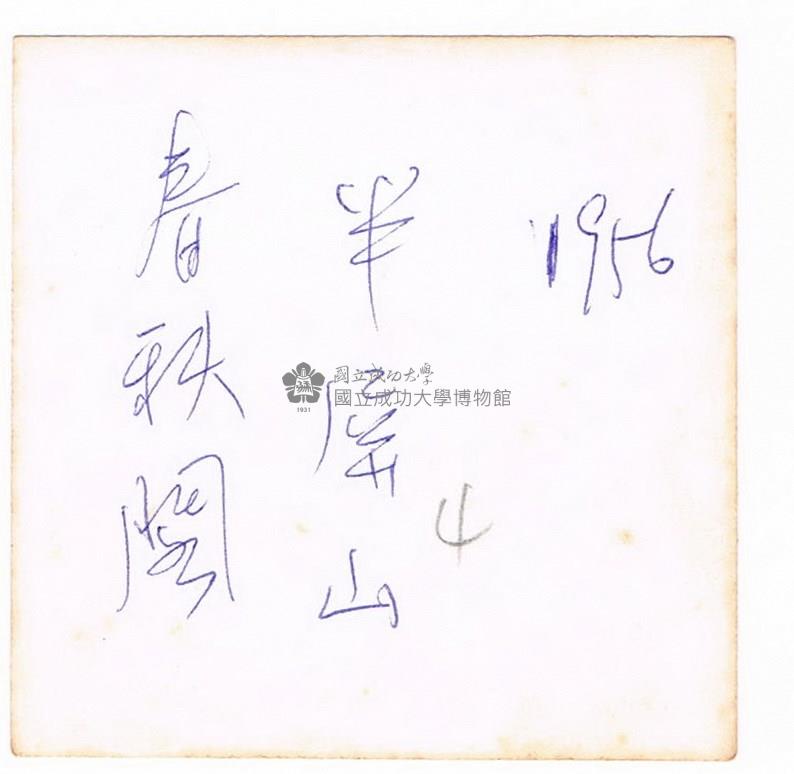 1956
半屏山
春秋閣
4
國立成功大學
國立成功大學博物館
1931